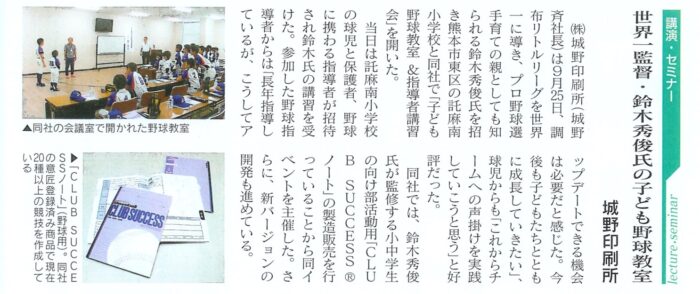 講演・セミナー
lecture・seminar
世界一監督・鈴木秀俊氏の子ども野球教室
城野印刷所
㈱城野印刷所（城野
斉社長）は9月25日、調
布リトルリーグを世界
一に導き、プロ野球選
手育ての親としても知
られる鈴木秀俊氏を招
き熊本市東区の託麻南
小学校と同社で「子ども
野球教室＆指導者講習
会」を開いた。
当日は託麻南小学校
の球児と保護者、野球
に携わる指導者が招待
され鈴木氏の講習を受
けた。参加した野球指
導者からは「長年指導し
ているが、こうしてア
ップデートできる機会
は必要だと感じた。今
後も子どもたちととも
に成長していきたい」、
球児からも「これからチ
ームへの声掛けを実践
していこうと思う」と好
評だった。
同社では、鈴木秀俊
氏が監修する小中学生
の向け部活動用「CLU
B SUCCESS®
ノート」の製造販売を行
っていることから同イ
ベントを主催した。さ
らに、新バージョンの
開発も進めている。
▲同社の会議室で開かれた野球教室
▶「CLUB SUCCE
SSノート」（野球用）。同社
の意匠登録済み商品で現在
20種以上の競技を作成して
いる
CLUB SUCCESS